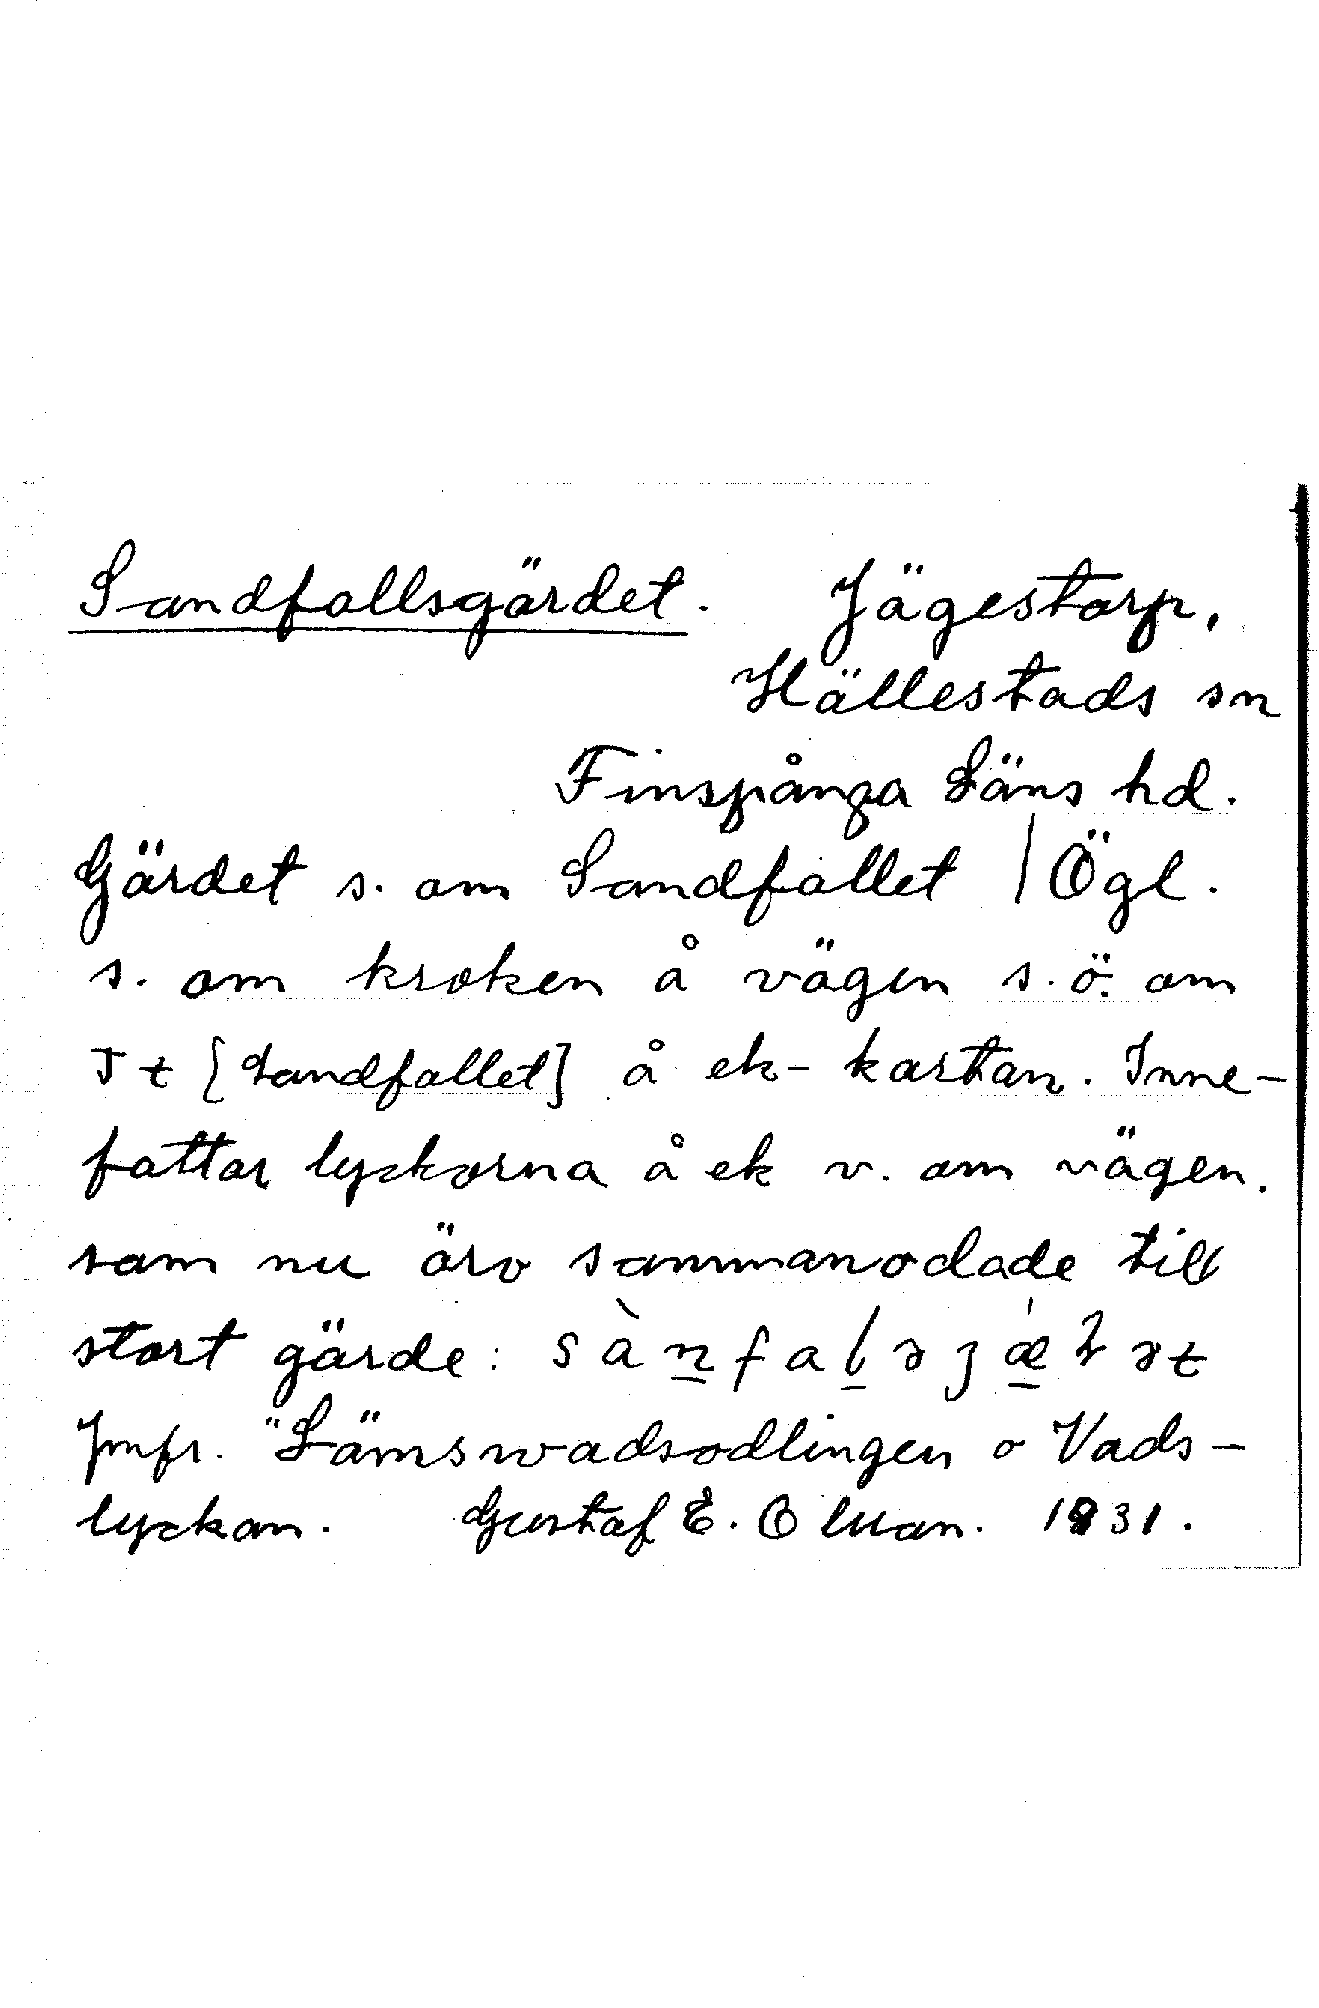 Sandfallsgärdet. Jägestorp,
Hällestads sn
Finspånga Läns hd.
Gärdet s. om Sandfallet / Ögl.
s. om kroken å vägen s.ö. om
Jt [Sandfallet] å ek-kartan. Inne-
fattar lyckorna å ek v. om vägen.
som nu äro sammanodade till
stort gärde: sànfaləjæ̀ɖət
Jmfr. "Lämswadsodlingen o Vads-
lyckan. Gustaf E. 1931.